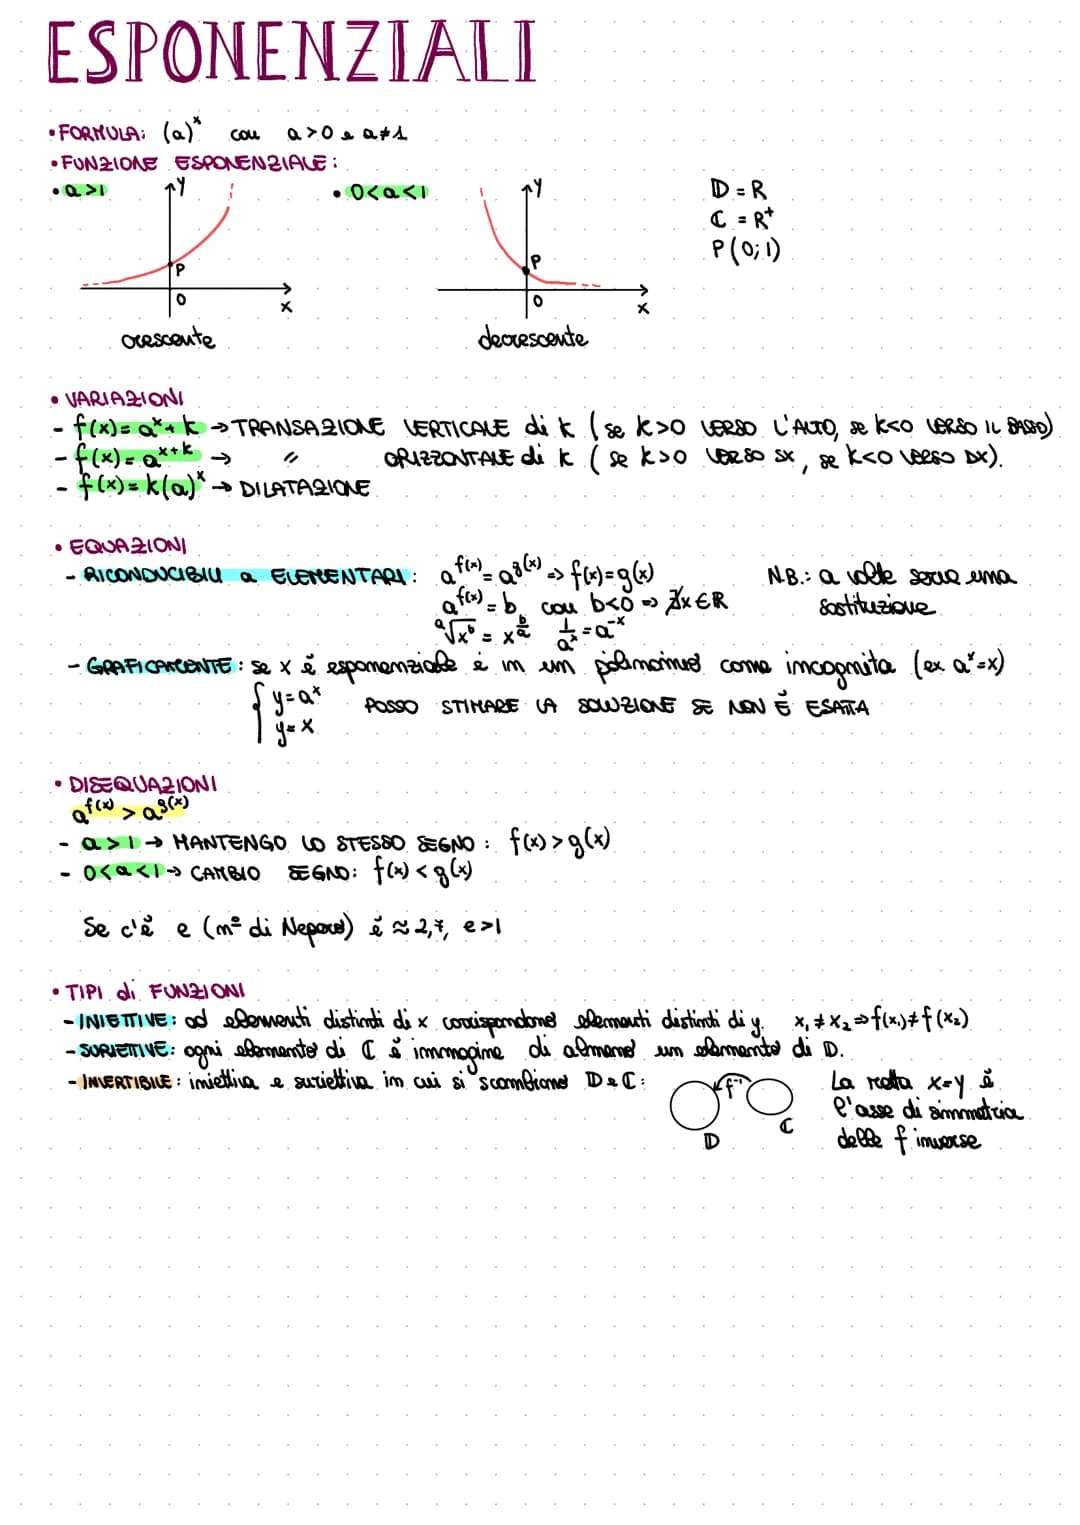 ESPONENZIALI
• FORMULA: (a)ˣ con a>0 e a≠1
• FUNZIONE ESPONENZIALE:
• a>1
y
P
0
x
crescente
• 0<a<1
y
P
0
x
decrescente
D = R
C = R⁺
P(0;1)
• VARIAZIONI
- f(x)= aˣ+k → TRANSAZIONE VERTICALE di k (se k>0 VERSO L'ALTO, se k<0 VERSO IL BASSO)
- f(x)= aˣ⁺ᵏ → " ORIZZONTALE di k (se k>0 VERSO SX, se k<0 VERSO DX).
- f(x)= k(a)ˣ → DILATAZIONE
• EQUAZIONI
- RICONDUCIBILI a ELEMENTARI: a^f(x) = a^g(x) => f(x)=g(x)
a^f(x) = b con b<0 => ∄x∈R
ᵃ√xᵇ = x^(b/a) 1/aˣ = a⁻ˣ
N.B.: a volte serve una
sostituzione
- GRAFICAMENTE: se x è esponenziale e in un polinomio come incognita (ex aˣ=x)
{ y=aˣ
y=x
POSSO STIMARE LA SOLUZIONE SE NON È ESATTA
• DISEQUAZIONI
a^f(x) > a^g(x)
- a>1 → MANTENGO LO STESSO SEGNO: f(x)>g(x)
- 0<a<1 → CAMBIO SEGNO: f(x)<g(x)
Se c'è e (nº di Nepero) è ≈ 2,7, e>1
• TIPI di FUNZIONI
- INIETTIVE: ad elementi distinti di x corrispondono elementi distinti di y. x₁≠x₂ => f(x₁)≠f(x₂)
- SURIETTIVE: ogni elemento di C è immagine di almeno un elemento di D.
- INVERTIBILE: iniettiva e suriettiva in cui si scambiano D e C:
f⁻¹
D
C
La retta x=y è
l'asse di simmetria
delle f inverse